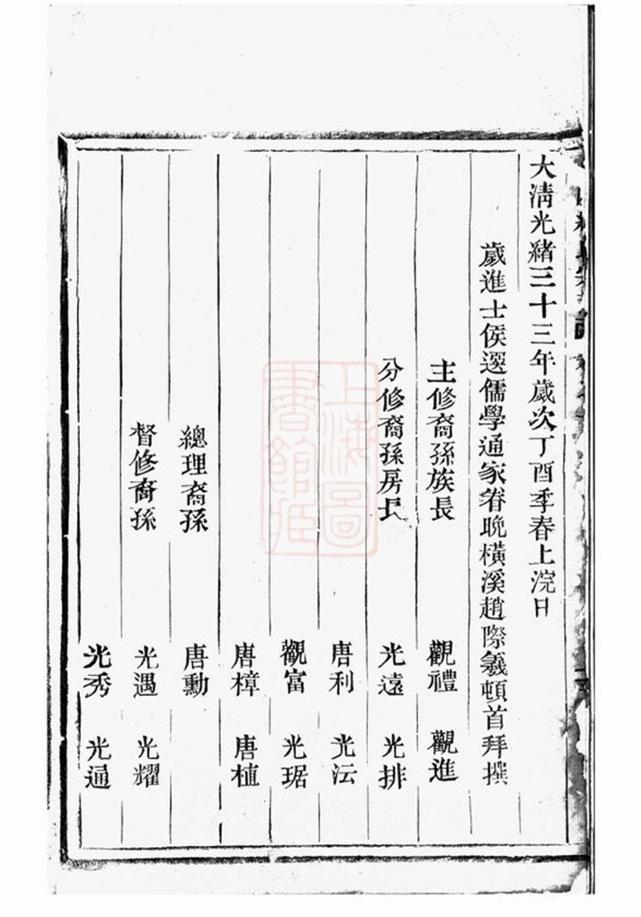 大清光緒三十三年歲次丁酉季春上浣日
歲進士侯選儒學通家眷晚橫溪趙際羲頓首拜撰
主修裔孫族長 觀禮 觀進
分修裔孫房長 光遠 光排
唐利 光沄
觀富 光琚
唐樟 唐植
總理裔孫 唐勳
督修裔孫 光遇 光耀
光秀 光通
上海圖書館藏